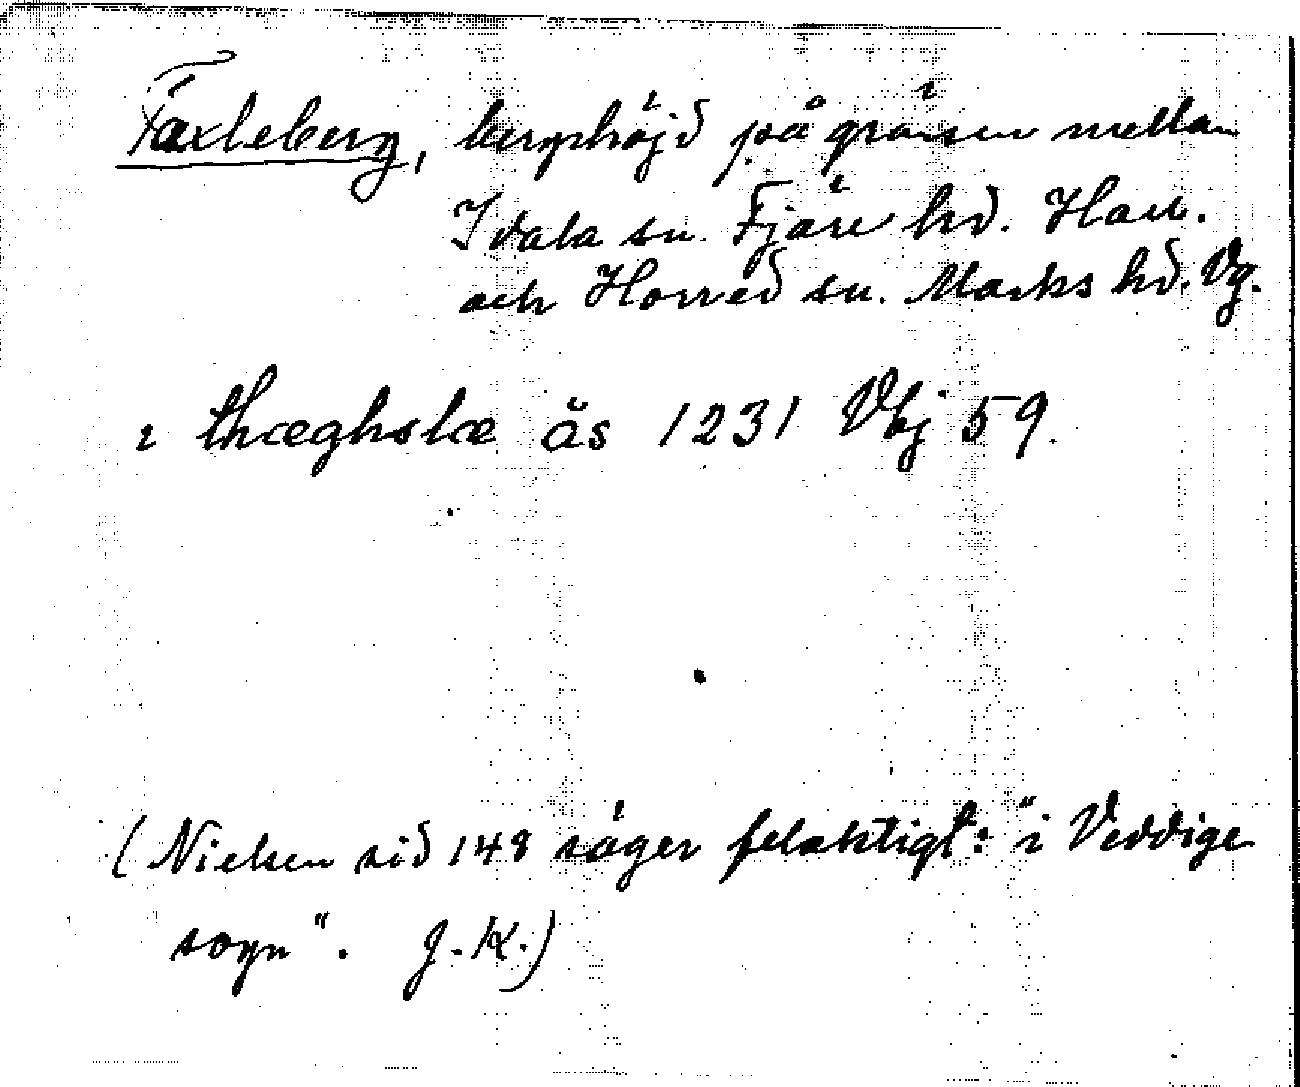 Taxleberg, bergshöjd på gränsen mellan
Idala sn. Fjäre hd. Hall.
och Horred sn. Marks hd. Vg.
i thæghslæ ås 1231 Vbj 59.
(Nielsen sid 148 säger felaktigt: "i Veddige
sogn". J.K.)